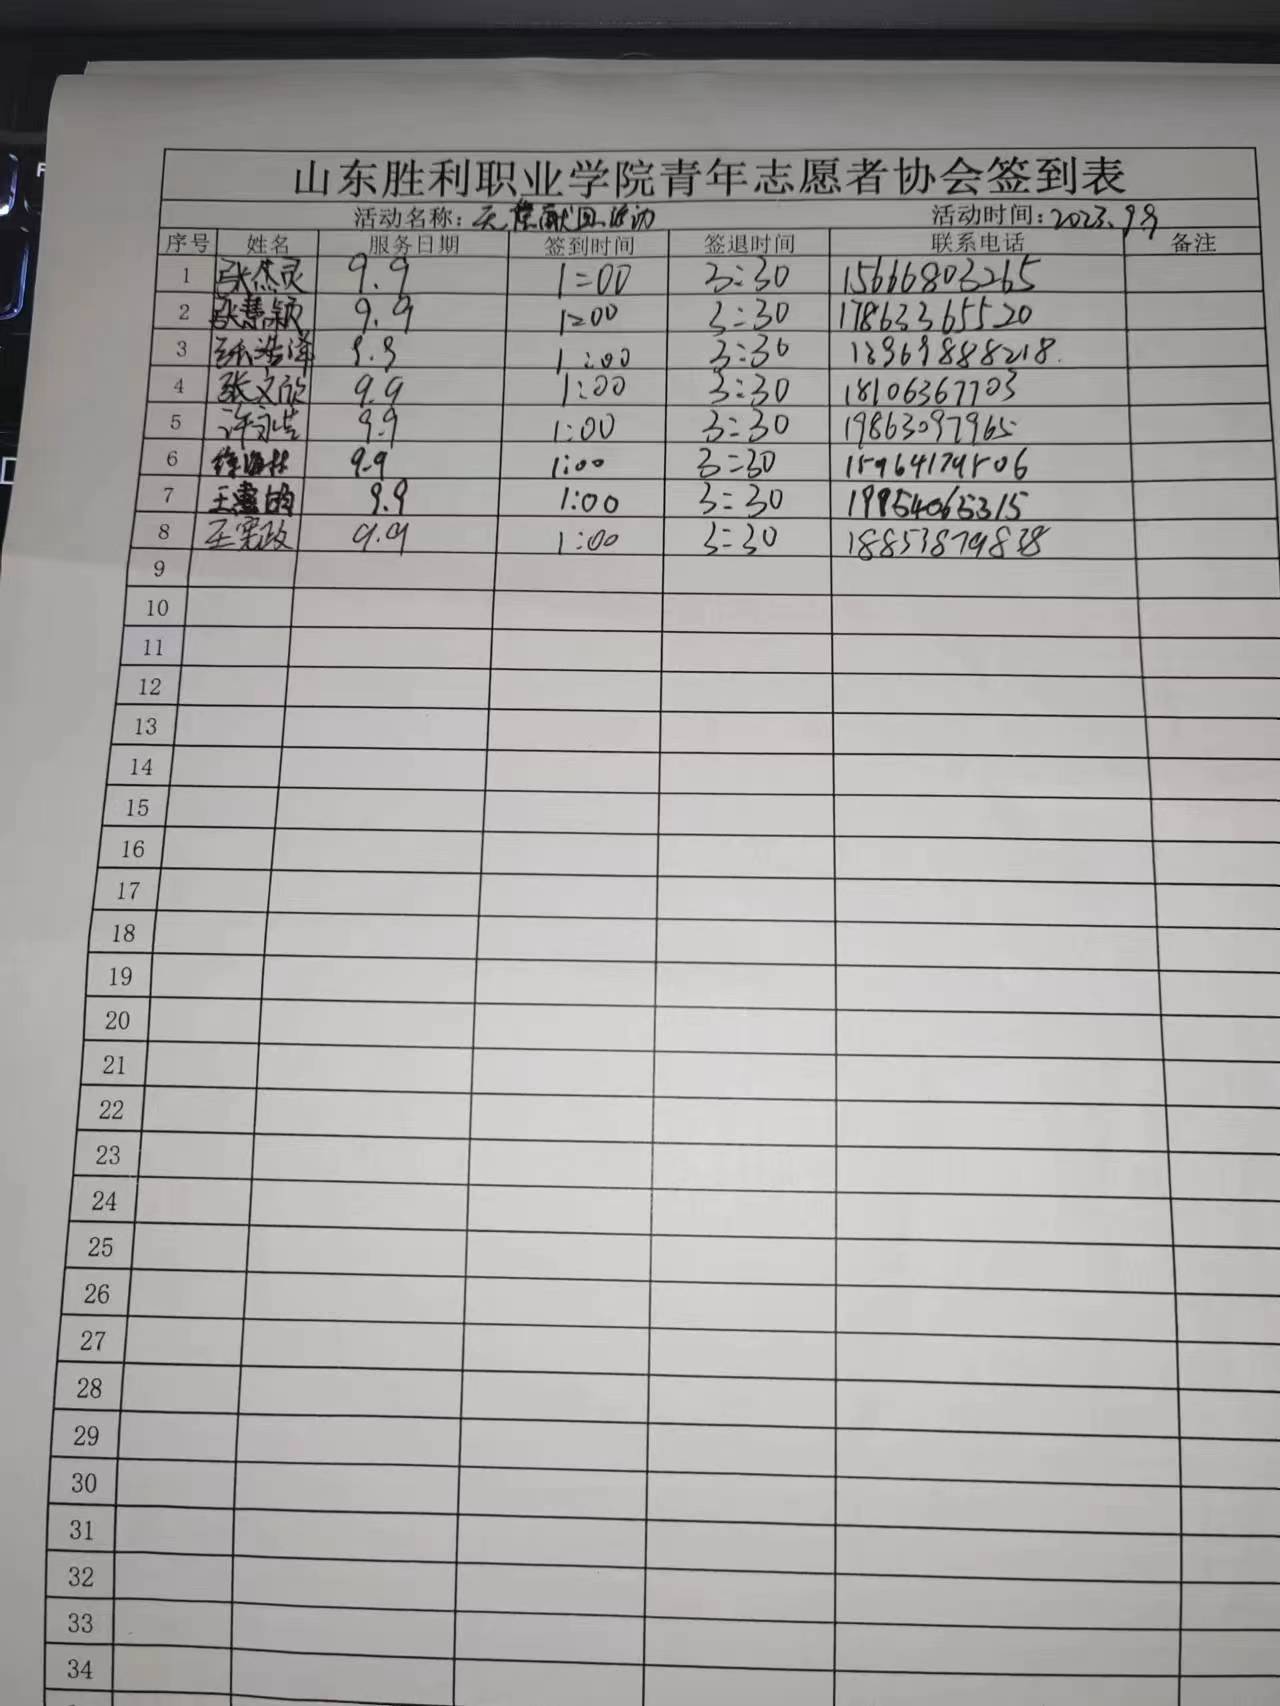 山东胜利职业学院青年志愿者协会签到表
活动名称：无偿献血活动 活动时间：2023.9.9
序号 姓名 服务日期 签到时间 签退时间 联系电话 备注
1 张杰灵 9.9 1:00 3:30 15666803265
2 张慧颖 9.9 1:00 3:30 17863365520
3 浩泽 9.9 1:00 3:30 13969888218.
4 张文欣 9.9 1:00 3:30 18106367703
5 许永浩 9.9 1:00 3:30 19863097965
6 9.9 1:00 3:30 15964174506
7 王 9.9 1:00 3:30 19954065315
8 王宪政 9.9 1:00 3:30 18853879838
9
10
11
12
13
14
15
16
17
18
19
20
21
22
23
24
25
26
27
28
29
30
31
32
33
34